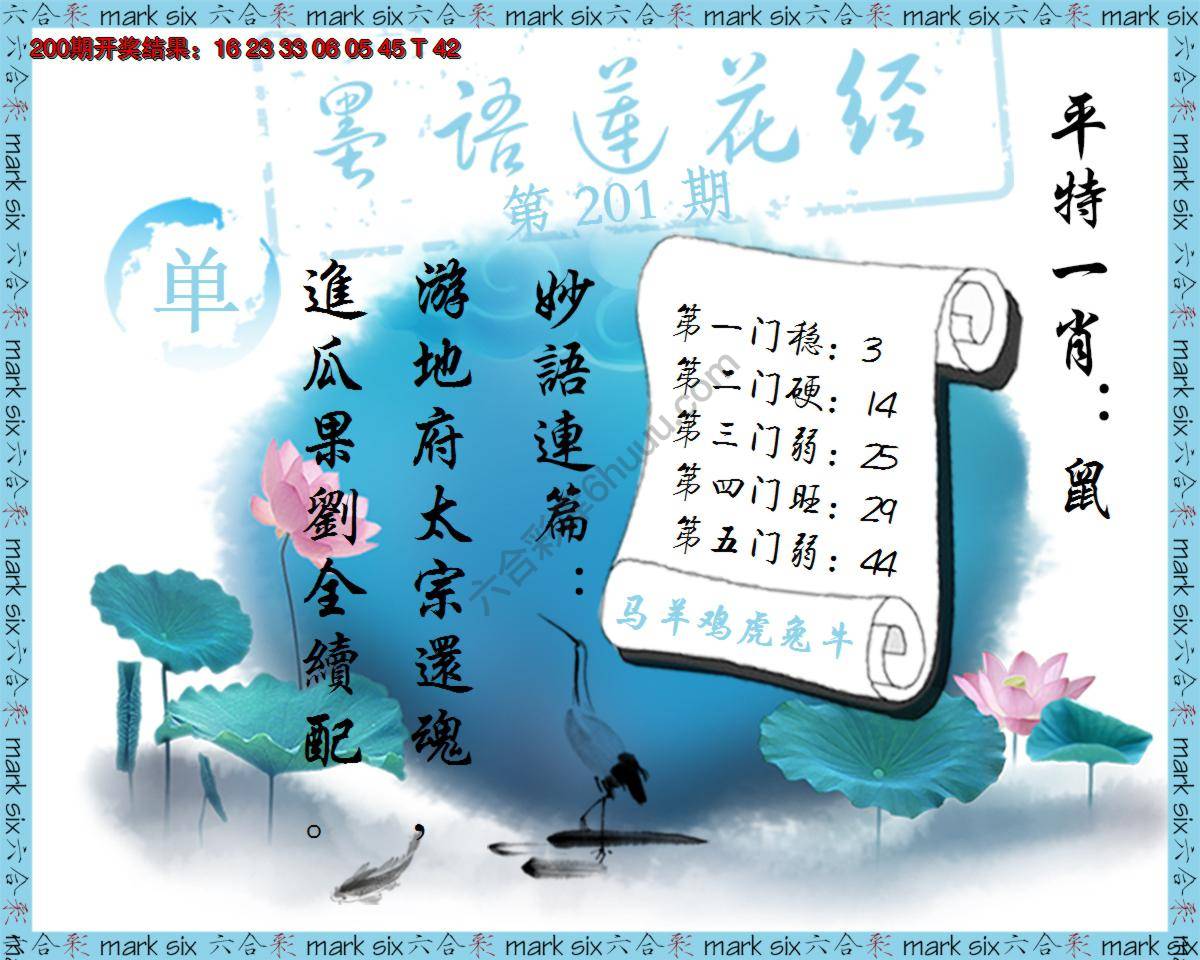 六合彩 mark six 六合彩 mark six 六合彩 mark six 六合彩 mark six 六合彩 mark six 六合彩 mark six
200期开奖结果：16 23 33 06 05 45 T 42
墨語莲花经
第 201 期
单
平特一肖：鼠
妙語連篇：
游地府太宗還魂，
進瓜果劉全續配。
第一门稳：3
第二门硬：14
第三门弱：25
第四门旺：29
第五门弱：44
马羊鸡虎兔牛
六合彩 mark six 六合彩 mark six 六合彩 mark six 六合彩 mark six 六合彩 mark six 六合彩 mark six